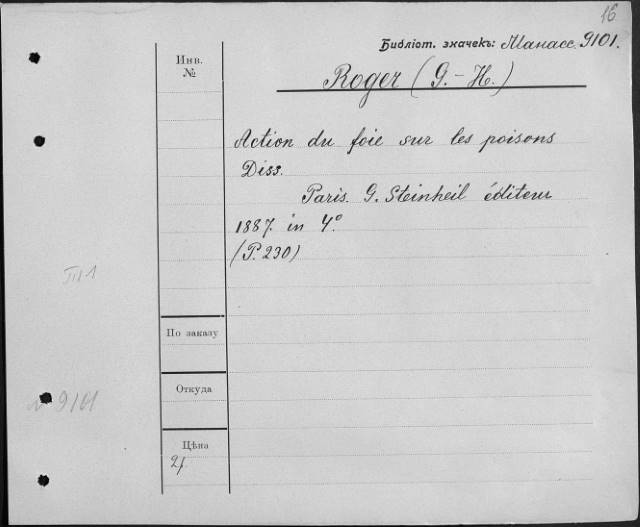 16
Библіот. значекъ: Манасс. 9101.
Инв. №
Roger (G.-H.)
Action du foie sur les poisons
Diss.
Paris. G. Steinheil éditeur
1887. in 4°
(P. 230)
III 1
По заказу
Откуда
№ 9101
Цѣна